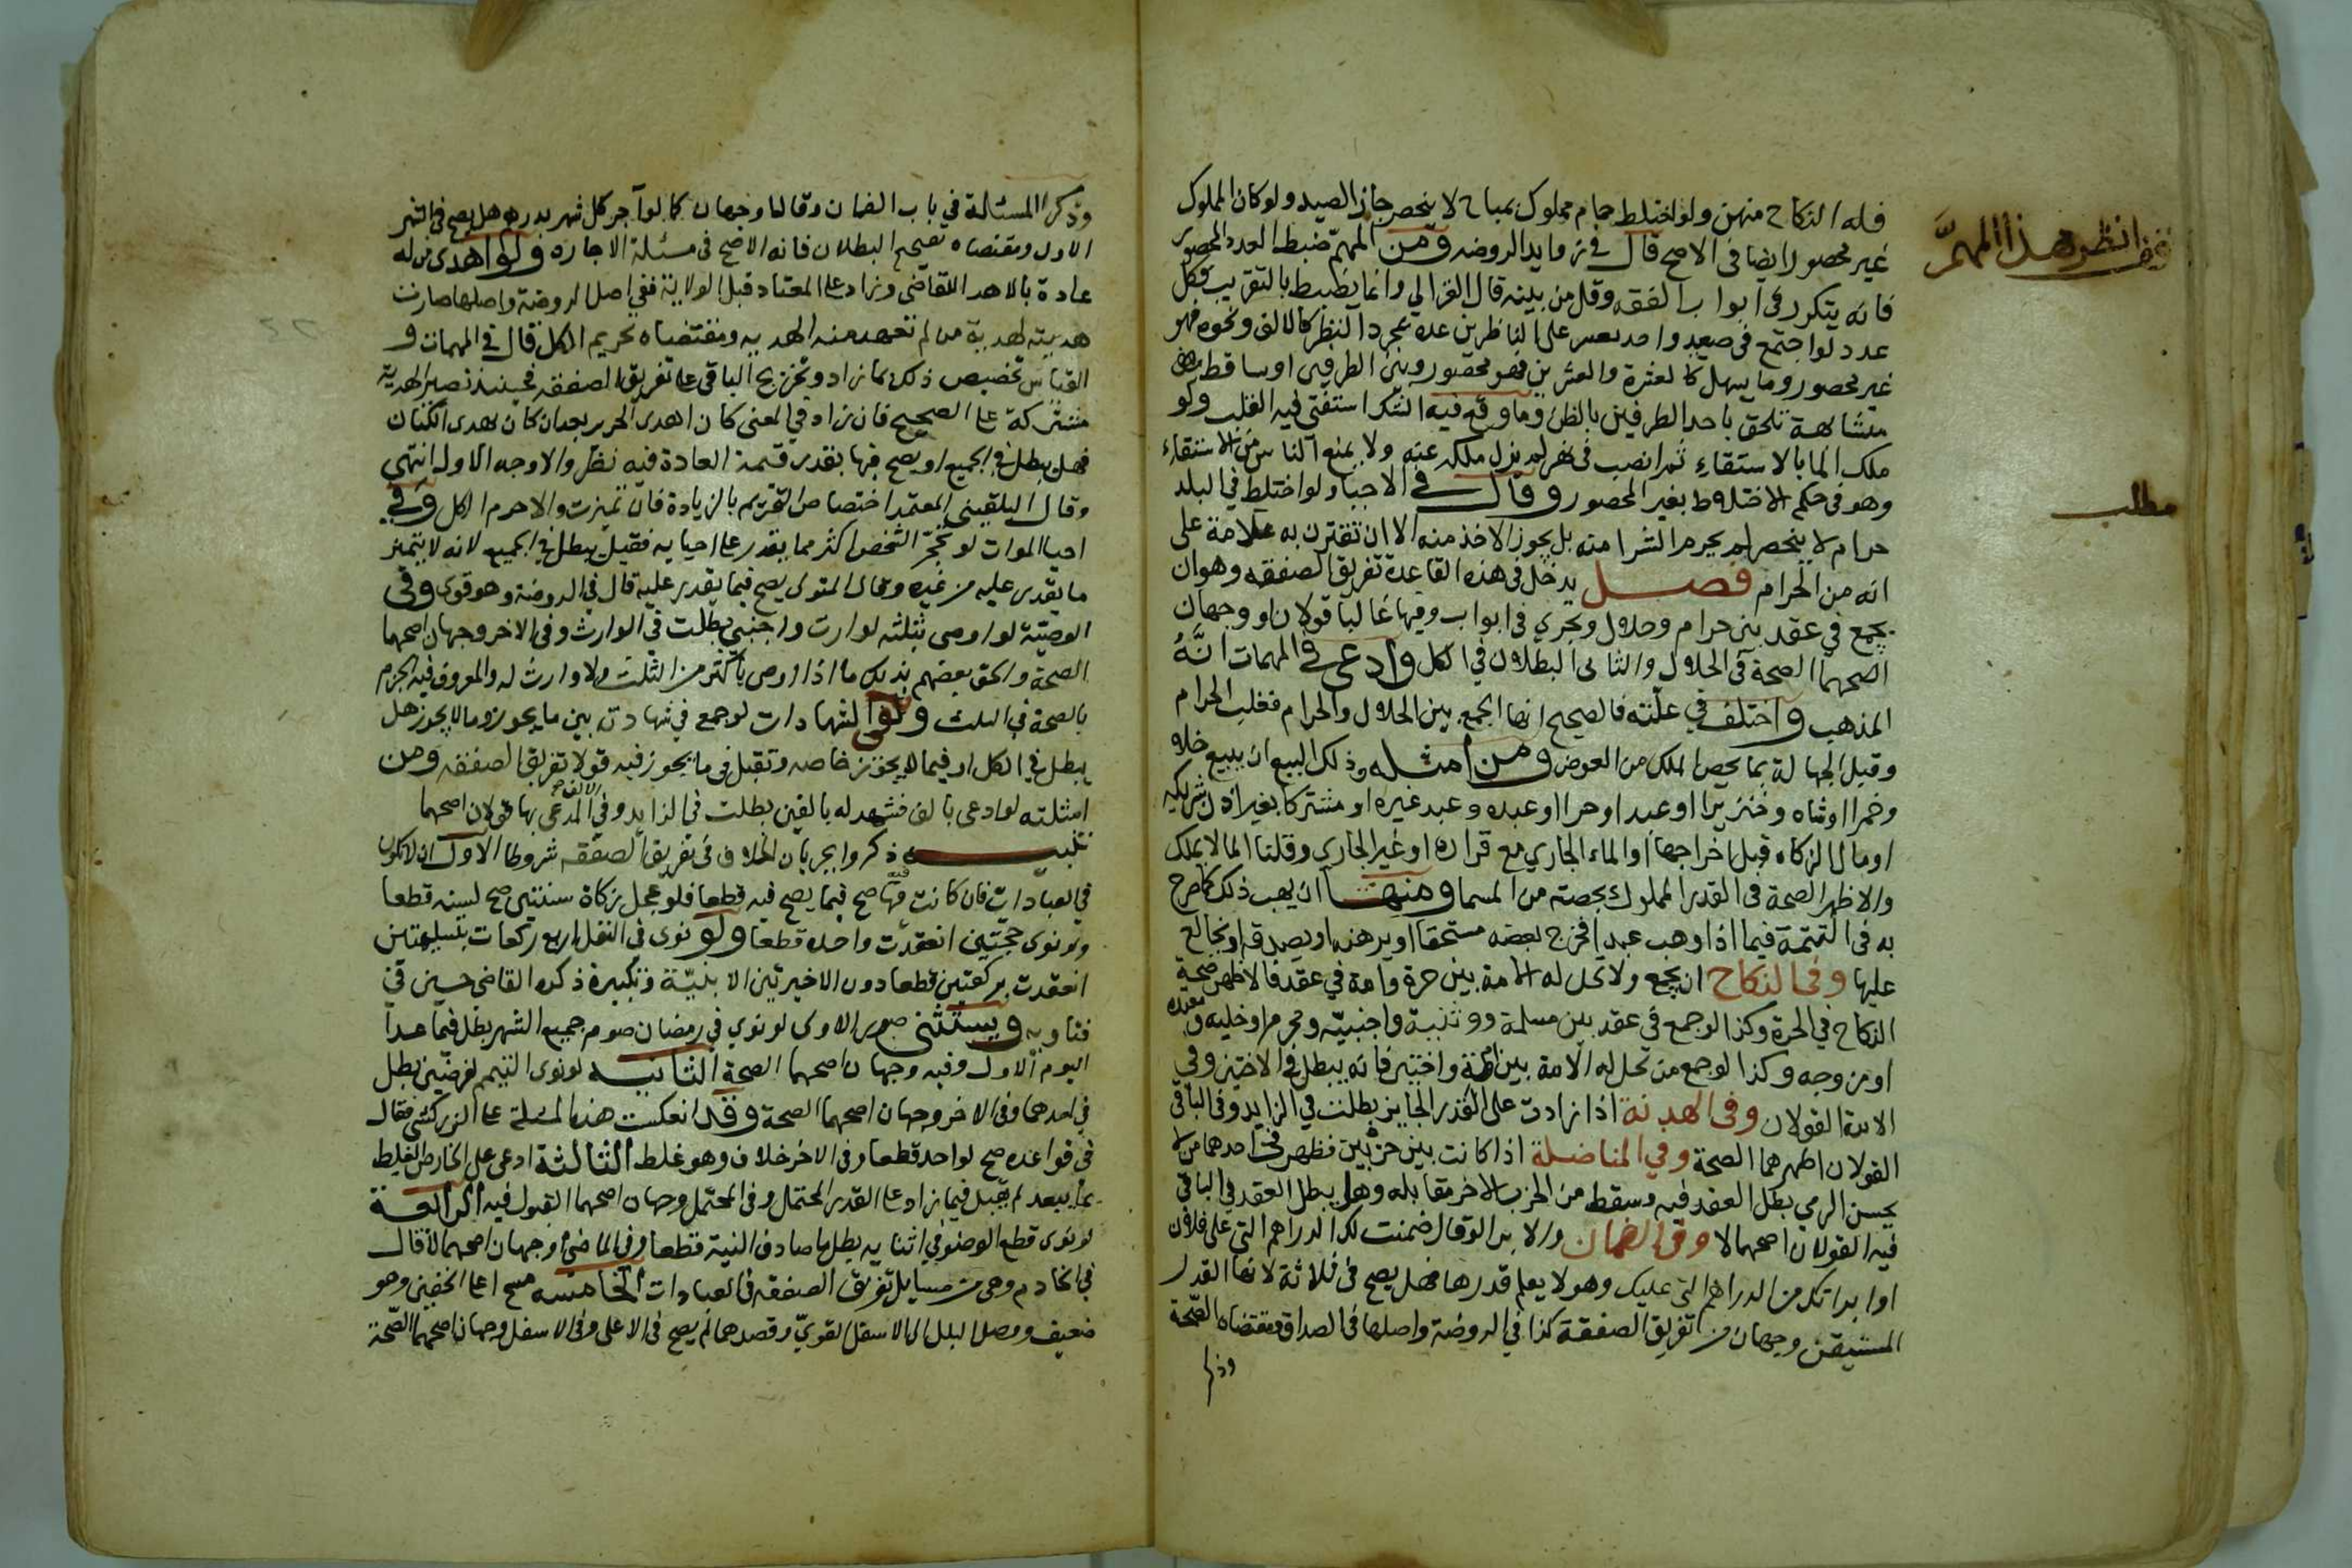 فله النكاح منهن ولو اختلط حمام مملوك بمباح لا ينحصر جاز الصيد ولو كان المملوك
غير محصور ايضا في الاصح قال في زوايد الروضه ومن المهم ضبط العدد المحصور
فانه يتكرر في ابواب الفقه وقل من بينه قال الغزالي وانما يضبط بالتقريب فكل
عدد لو اجتمع في صعيد واحد بعسر على الناظرين عده بمجرد النظر كالالف ونحوه فهو
غير محصور وما يسهل كالعشرة والعشرين فهو محصور وبين الطرفين اوساط
متشابهة تلحق باحد الطرفين بالظن وما وقع فيه الشك استفتي فيه القلب ولو
ملك الما بالاستقاء ثم انصب في نهر لم يزل ملكه عنه ولا يمنع الناس من الاستقاء
وهو في حكم الاختلاط بغير المحصور وقال في الاحيا ولو اختلط في البلد
حرام لا ينحصر لم يحرم الشرا منه بل يجوز الاخذ منه الا ان تقترن به علامة على
انه من الحرام فصل يدخل في هذه القاعدة تفريق الصفقه وهو ان
يجمع في عقد بين حرام وحلال ويجري في ابواب وفيها غالبا قولان او وجهان
اصحهما الصحة في الحلال والثاني البطلان في الكل وادعى في المهمات انه
المذهب واختلف في علته فالصحيح انها الجمع بين الحلال والحرام فغلب الحرام
وقيل الجهالة بما يخص الملك من العوض ومن امثله ذلك البيع ان يبيع خلا
وخمرا او شاه وخنزيرا او عبدا وحرا او عبده وعبد غيره او مشتركا بغير اذن شريكه
او مال الزكاه قبل اخراجها او الماء الجاري مع قراره او غير الجاري وقلنا الما لا يملك
والاظهر الصحة في القدر المملوك بحصته من المسما ومنها ان يهب ذلك كما صرح
به في التتمة فيما اذا وهب عبدا فخرج بعضه مستحقا او يرهنه او يصدقه او يخالع
عليها وفي النكاح ان يجمع ولا تحل له الامة بين حرة وامة في عقد فالاظهر صحة
النكاح في الحرة وكذا لو جمع في عقد بين مسلمة ووثنية واجنبية ومحرم او خليه ومعتده
او مزوجه وكذا لو جمع من تحل له الامة بين امة واختين فانه يبطل في الاختين وفي
الامة القولان وفي الهدنة اذا زادت على القدر الجايز بطلت في الزايد وفي الباقي
القولان اظهرهما الصحة وفي المناضلة اذا كانت بين حزبين فظهر في احدهما من لا
يحسن الرمي بطل العقد فيه وسقط من الحزب الاخر مقابله وهل يبطل العقد في الباقي
فيه القولان اصحهما لا وفي الضمان والابرا لو قال ضمنت لك الدراهم التي على فلان
او ابراتك من الدراهم التي عليك وهو لا يعلم قدرها فهل يصح في ثلاثة لانها القدر
المستيقن وجهان من تفريق الصفقة كذا في الروضة واصلها في الصداق ومقتضاه الصحة
وذكرا
انظر هذا المهم
مطلب
وذكرا المسئلة في باب الضمان وقالا وجهان كما لو آجر كل شهر بدرهم هل يصح في الشهر
الاول ومقتضاه تصحيح البطلان فانه الاصح في مسئلة الاجاره ولو اهدى من له
عادة بالاهداء للقاضي وزاد على المعتاد قبل الولاية ففي اصل الروضة واصلها صارت
هديته كهدية من لم تعهد منه الهديه ومقتضاه تحريم الكل قال في المهمات و
القياس تخصيص ذلك بما زاد وتخريج الباقي على تفريق الصفقه فحينئذ تصير الهدية
مشتركة على الصحيح فان زاد في المعنى كان اهدى الحرير بعد ان كان يهدى الكتان
فهل يبطل في الجميع او يصح فيها بقدر قيمة العادة فيه نظر والاوجه الاول انتهى
وقال البلقيني المعتمد اختصاص التحريم بالزيادة فان تميزت والا حرم الكل وفي
احيا الموات لو تحجر الشخص اكثر مما يقدر على احيايه فقيل يبطل في الجميع لانه لا يتميز
ما يقدر عليه من غيره وقال المتولي يصح فيما يقدر عليه قال في الروضة وهو قوى وفي
الوصية لو اوصى بثلثه لوارث واجنبي بطلت في الوارث وفي الاخر وجهان اصحهما
الصحة والحق بعضهم بذلك ما اذا اوصى باكثر من الثلث ولا وارث له والمعروف فيه الجزم
بالصحة في الثلث وفي الشهادات لو جمع في شهادته بين ما يجوز وما لا يجوز هل
يبطل في الكل او فيما لا يجوز خاصه وتقبل في ما يجوز فيه قولا تفريق الصفقه ومن
امثلته لو ادعى بالف فشهد له بالفين بطلت في الزايد وفي الالف المدعى بها قولان اصحهما
تنبيه ذكروا لجريان الخلاف في تفريق الصفقه شروطا الاول ان لا يكون
في العبادات فان كانت فيها صح فيما يصح فيه قطعا فلو عجل زكاة سنتين صح لسنه قطعا
ولو نوى حجتين انعقدت واحده قطعا ولو نوى في النفل اربع ركعات بتسليمتين
انعقدت بركعتين قطعا دون الاخيرتين الا بنية وتكبيرة ذكره القاضي حسين في
فتاويه ويستثنى صور الاولى لو نوى في رمضان صوم جميع الشهر بطل فيما عدا
اليوم الاول وفيه وجهان اصحهما الصحة الثانيه لو نوى التيمم لفرضين بطل
في احدهما وفي الاخر وجهان اصحهما الصحة وقد انعكست هذه المسئلة على الزركشي فقال
في قواعده صح لواحد قطعا وفي الاخر خلاف وهو غلط الثالثة ادعى على الخارص الغلط
بما يبعد لم يقبل فيما زاد على القدر المحتمل وفي المحتمل وجهان اصحهما القبول فيه الرابعة
لو نوى قطع الوضوء في اثنايه بطل ما صادف النية قطعا وفي الماضي وجهان اصحهما لا قال
في الخادم وهي من مسايل تفريق الصفقه في العبادات الخامسه مسح اعلا الخفين وهو
ضعيف ووصل البلل الى الاسفل القوي وقصدهما لم يصح في الاعلى وفي الاسفل وجهان اصحهما الصحة